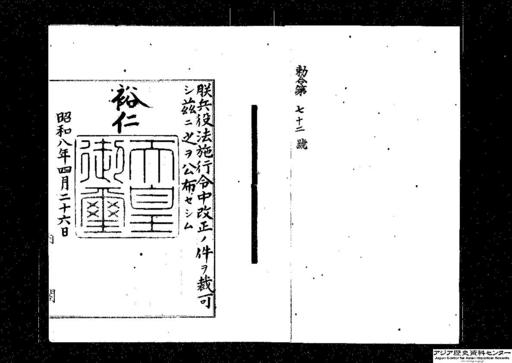 勅令第七十二號
朕兵役法施行令中改正ノ件ヲ裁可
シ茲ニ之ヲ公布セシム
裕仁
天皇
御璽
昭和八年四月二十六日
閣
アジア歴史資料センター
Japan Center for Asian Historical Records